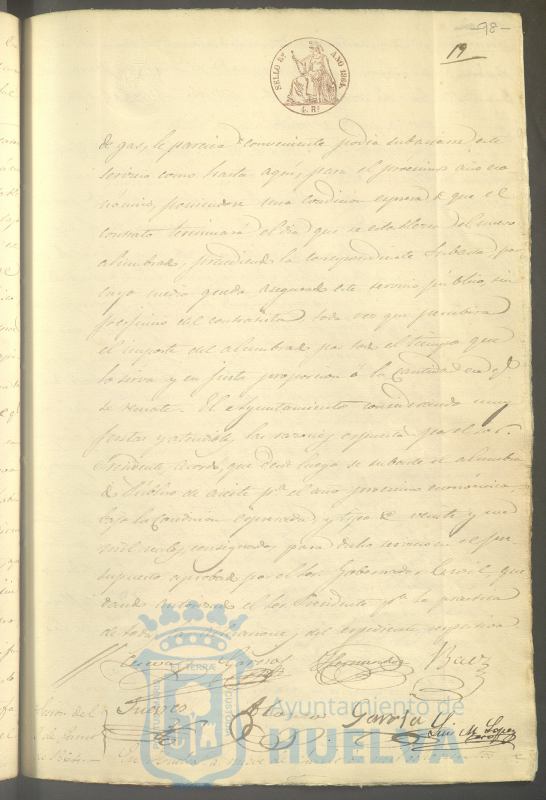 -98-
19
SELLO 8º AÑO 1864.
4. Rs
de gas, le parecia conveniente podia subastarse este
servicio como hasta aqui, para el próximo año eco
nomico, poniendose una condicion espresa de que el
contrato terminará el dia que se establezca el nuevo
alumbrado, precediendo la correspondiente Subasta, por
cuyo medio queda asegurado este servicio público, sin
perjuicio del contratista toda vez que percibirá
el importe del alumbrado por todo el tiempo que
lo sirva y en justa proporcion á la cantidad en q.
se remate. El Ayuntamiento considerando muy
justas y atendibles las razones espuestas por el Sor.
Presidente, acordó, que desde luego se subaste el alumbra
do público de aceite pa. el año procsimo económico,
bajo la condicion espresada, y tipo de veinte y
mil reales, consignados para dicho servicio en el pre
supuesto aprobado por el Sor. Gobernador Civil, que
dando autorizado el Sor. Presidente pa. la practica
de todas del espediente respectivo
Garcia Hernandez
Garcia Luis M. Lopez
Sesion del
de 1864.
Ayuntamiento de
HUELVA